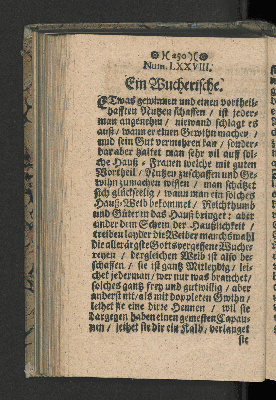 )( 250 )(
Num. LXXVIII.
Ein Wucherische.
ETwas gewinnen und einen vortheil-
hafften Nutzen schaffen / ist jeder-
man angenehm / niemand schlagt es
auß / wann er einen Gewihn machen /
und sein Gut vermehren kan / sonder-
bar aber haltet man sehr vil auff sol-
che Hauß-Frauen welche mit guten
Vortheil / Nutzen zuschaffen und Ge-
wihn zumachen wissen / man schätzet
sich glückseelig / wann man ein solches
Hauß-Weib bekommet / Reichthumb
und Güter in das Hauß bringet: aber
under dem Schein der Häußlichkeit /
treiben layder die Weiber manchsmahl
die allerärgste Gottsvergessene Wuche-
reyen / dergleichen Weib ist also be-
schaffen / sie ist gantz Mitleydig / lei-
chet jederman / wer nur was brauchet /
solches gantz frey und gutwillig / aber
anderst nit / als mit doppleten Gwihn /
leihet sie eine dürre Hennen / wil sie
dargegen haben einen gemesten Capau-
nen / leihet sie dir ein Kalb / verlanget
sie